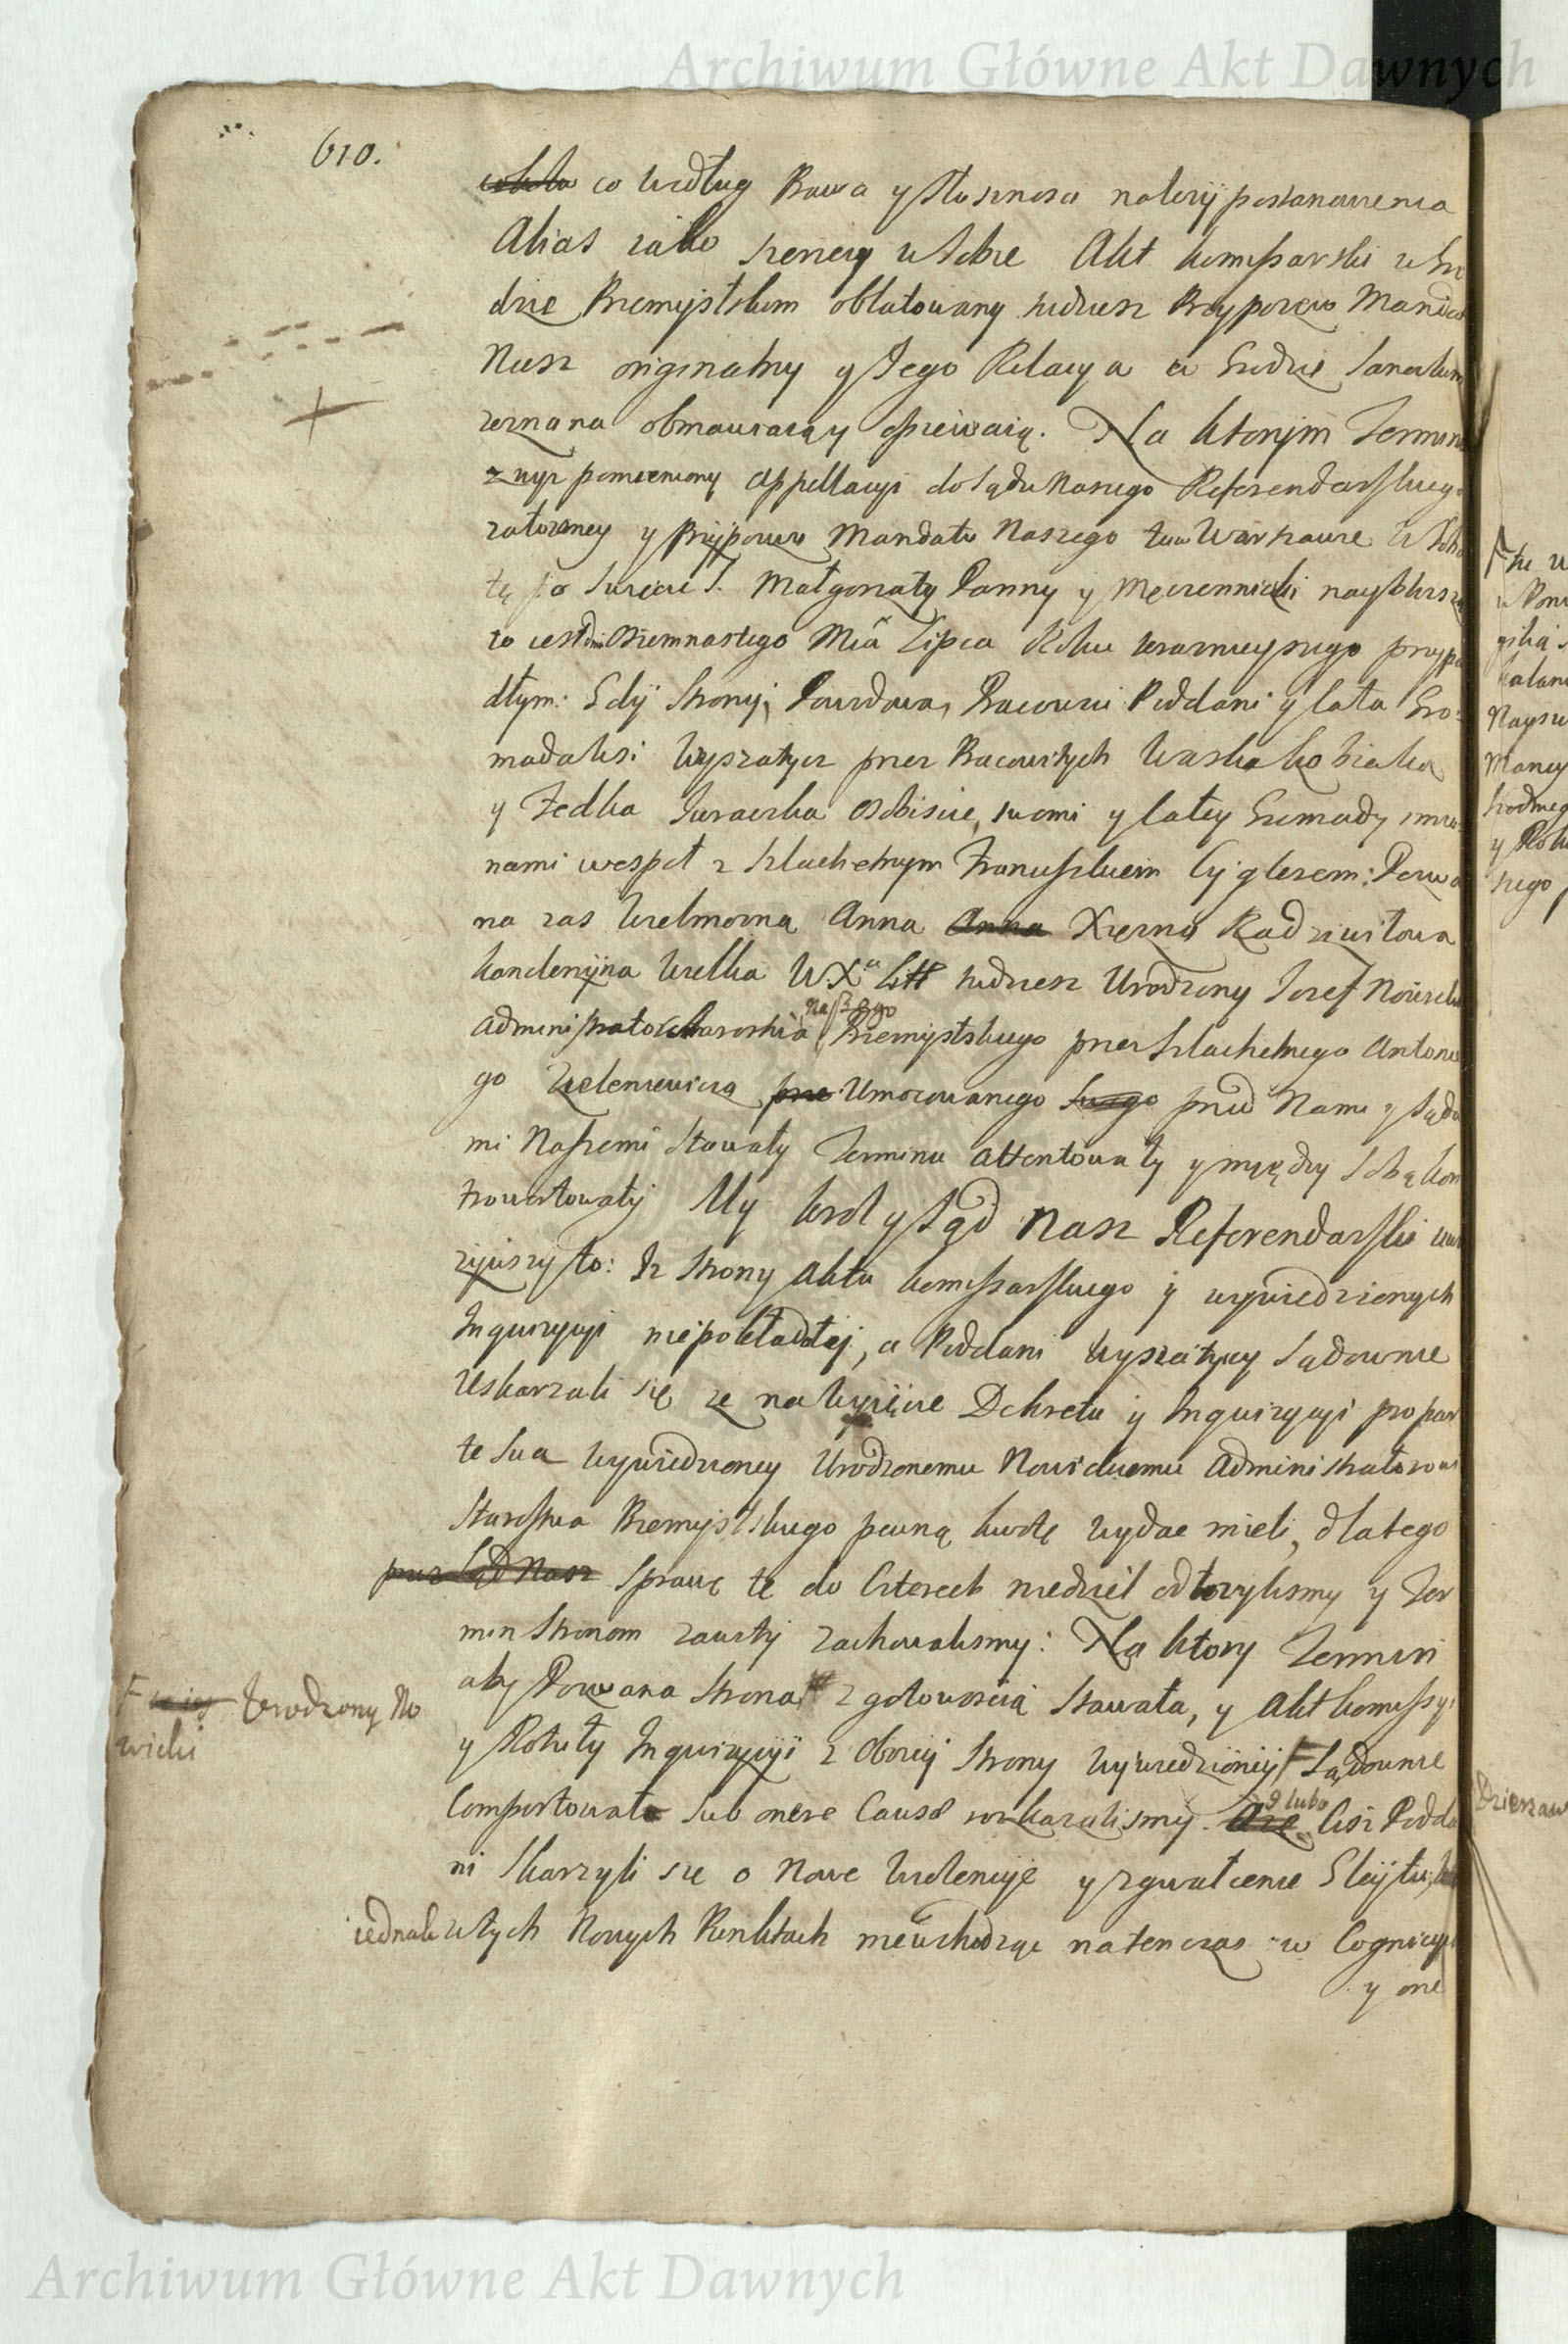 Archiwum Główne Akt Dawnych
610.
co według Prawa y słusznosci należy postanowienia
Alias iako szerzey w sobie Akt kommissarski w Gro
dzie Przemyslskim oblatowany tudziesz Przypozew Mandat
Nasz originalny y Jego Relacya w Grodzie Sanockim
zeznana obmawiaią y opiewaią. Na ktorym Terminie
z wyz pomienioney appellacyi do Sądu Naszego Referendarskiego
załozoney y Przypozwu Mandatu Naszego tu w Warszawie w Sobo
tę po Swięcie S. Małgorzaty Panny y Męczenniczki nayblisszą
to iest dnia Osiemnastego Mca Lipca Roku terazneyszego przypa
dłym: Gdy Strony, Powodowa, Pracowici Poddani y cała Gro:
mada wsi Wyszatycz przez Pracowitych Waska Kobiałka
y Fedka Juraszka osobiscie, swemi y całey Gromady imio
nami wespoł z Szlachetnym Franciszkiem Cyglerem: Pozwa
na zas Wielmozna Anna Xięzna Radziwiłowa
Kanclerzyna Wielka W.X.a Litt tudziesz Urodzony Jozef Nowicki
Administrator Starostwa naszego Przemyslskiego przez Szlachetnego Antonie
go Zieleniewicza Umocowanego przed Nami y Sąda
mi Naszemi Stawały Terminu attentowały y między Sobą kon
trowertowały My Krol y Sąd Nasz Referendarski uwa
zywszy to: Iz Strony Aktu kommissarskiego y wywiedzionych
Inquizycyi niepokładały, a Poddani Wyszatyccy Sądownie
Uskarzali się ze na Wyięcie Dekretu y Inquizycyi pro par
te sua wywiedzioney Urodzonemu Nowickiemu Administratorowi
Starostwa Przemyslskiego pewną kwotę wydac mieli, dlatego
Sprawę te do Czterech niedziel odłozylismy y Ter
min Stronom zawity zachowalismy: Na ktory Termin
aby Pozwana Strona z gotowoscią Stawała, y Akt kommissyi
F Urodzony No
wicki
y Rotuły Inquizycyi z oboiey Strony wywiedzioney F Sądownie
Comportował Sub onere Causæ nakazalismy. A lubo Cisz Podda
ni Skarzyli się o Nowe Wiolencyie y zgwałcenie Gleytu,
iednak w tych Nowych Punktach niewchodząc natenczas w Cognicyą
y one
Archiwum Główne Akt Dawnych